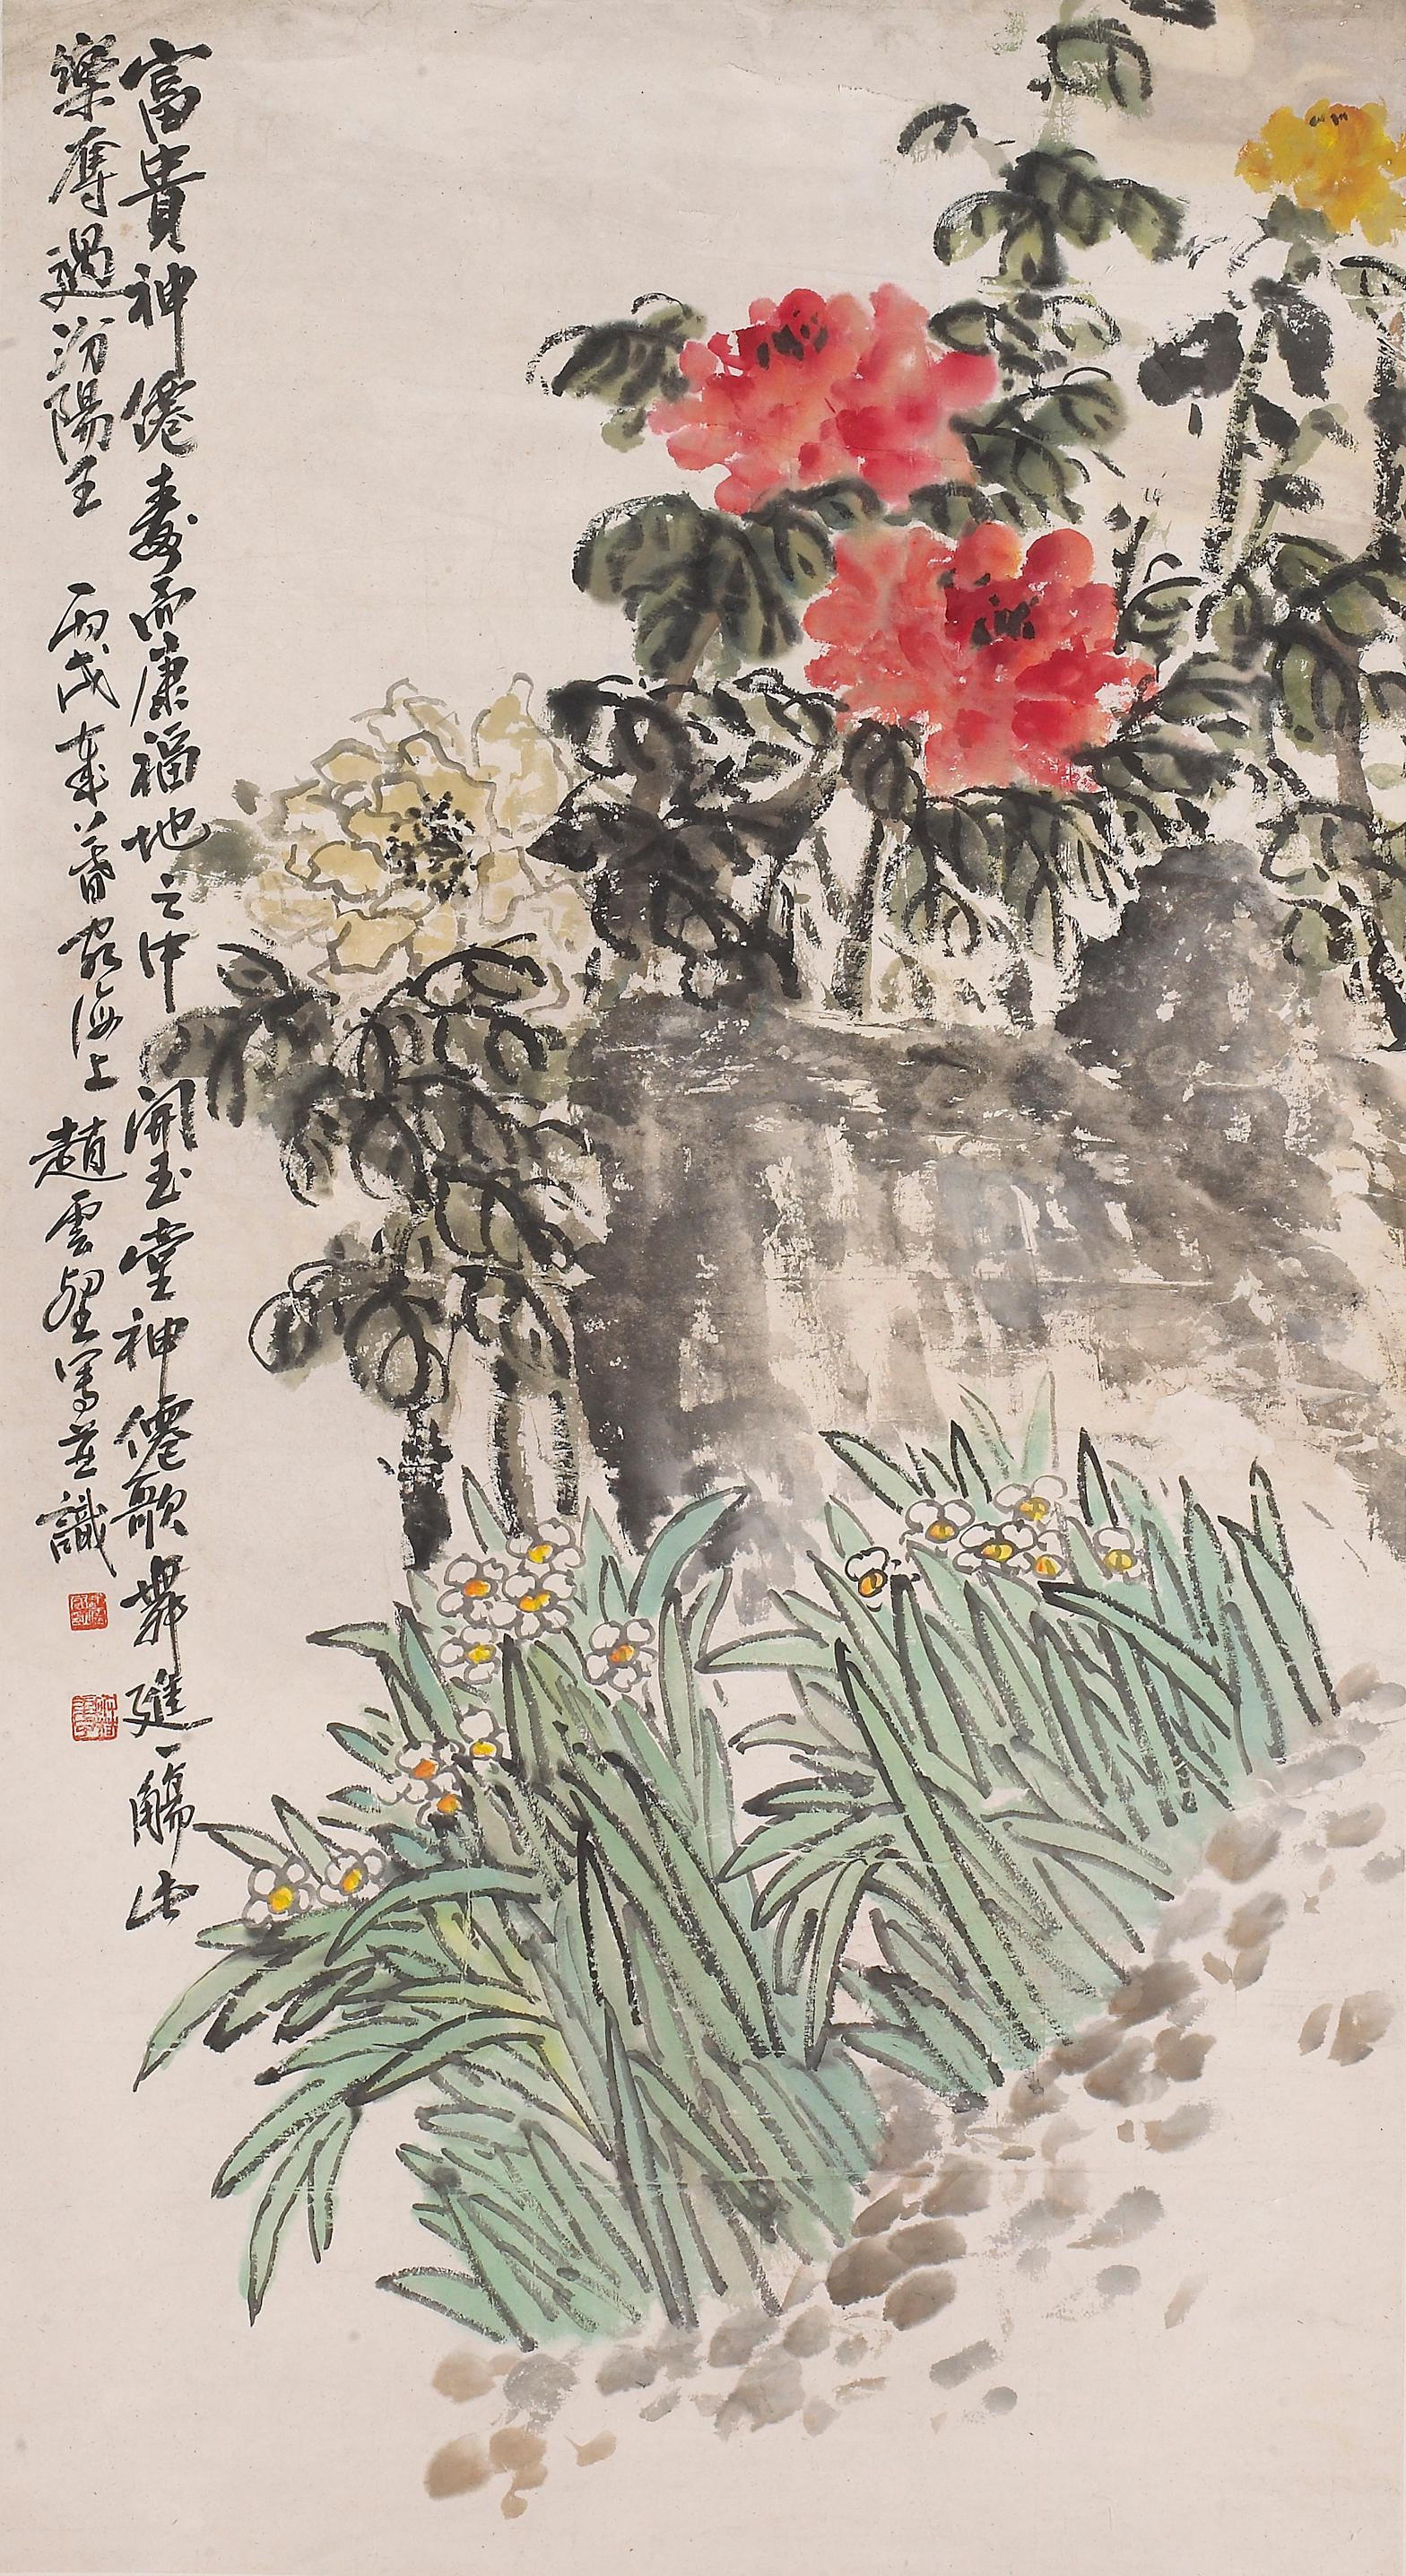 富貴神僊壽而康福地之中開玉堂神僊歌舞進一觴此
樂奪過汾陽王 丙戌春莫客海上趙雲壑寫並識